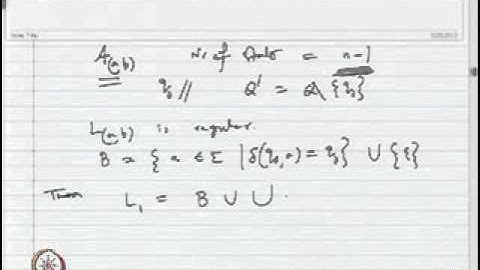 A(a,b) No. of states = n-1
q₀ // Q' = Q \ {q₀}
L(a,b) is regular.
B = { a ∈ Σ | δ(q₀,a) = q₀} ∪ {ε}
Then L₁ = B ∪ ⋃